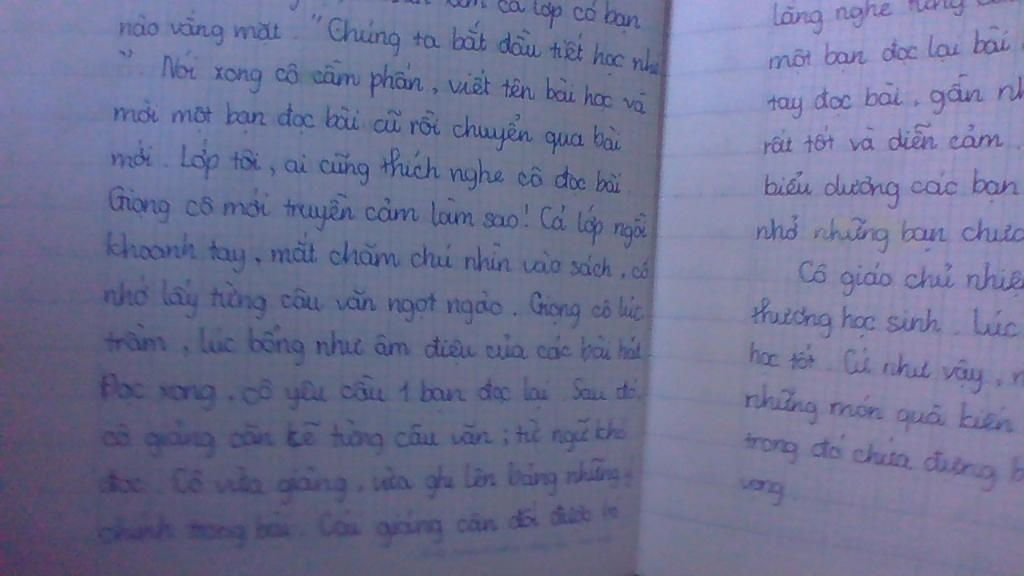 cả lớp có bạn
nào vắng mặt. "Chúng ta bắt đầu tiết học nhé
". Nói xong cô cầm phấn, viết tên bài học và
mời một bạn đọc bài cũ rồi chuyển qua bài
mới. Lớp tôi, ai cũng thích nghe cô đọc bài.
Giọng cô mới truyền cảm làm sao! Cả lớp ngồi
khoanh tay, mắt chăm chú nhìn vào sách, cố
nhớ lấy từng câu văn ngọt ngào. Giọng cô lúc
trầm, lúc bổng như âm điệu của các bài hát.
Đọc xong, cô yêu cầu 1 bạn đọc lại. Sau đó,
cô giảng cặn kẽ từng câu văn; từ ngữ khó
đọc. Cô vừa giảng, vừa ghi lên bảng những ý
chính trong bài.
lắng nghe từng
một bạn đọc lại bài
tay đọc bài, gần
rất tốt và diễn cảm.
biểu dương các bạn
nhở những bạn chưa
Cô giáo chủ nhiệm
thương học sinh. Lúc
học tốt. Cứ như vậy,
những món quà kiến
trong đó chứa đựng
vọng.